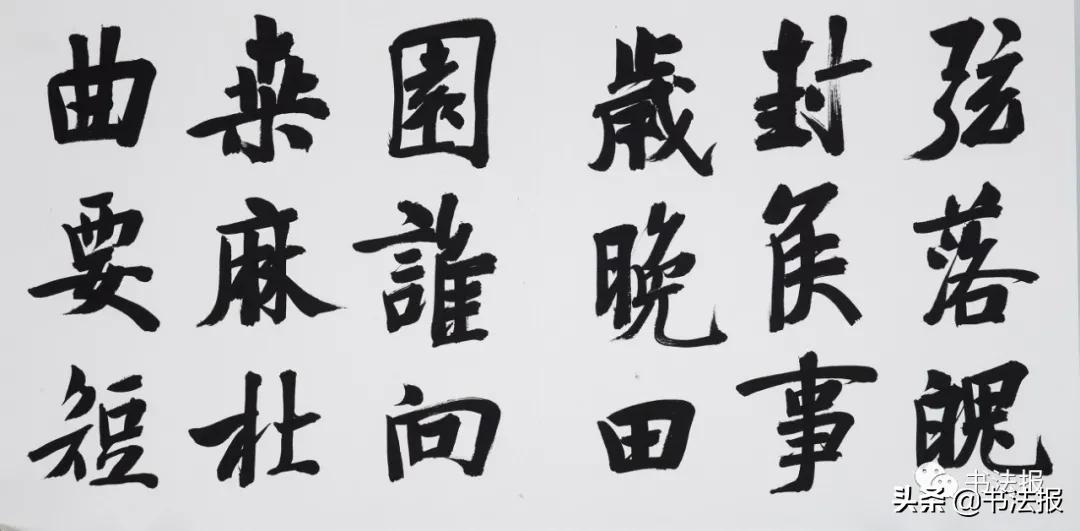 弦落魄
封侯事
歲晚田
園誰向
桑麻杜
曲要短
书法报
头条 @书法报